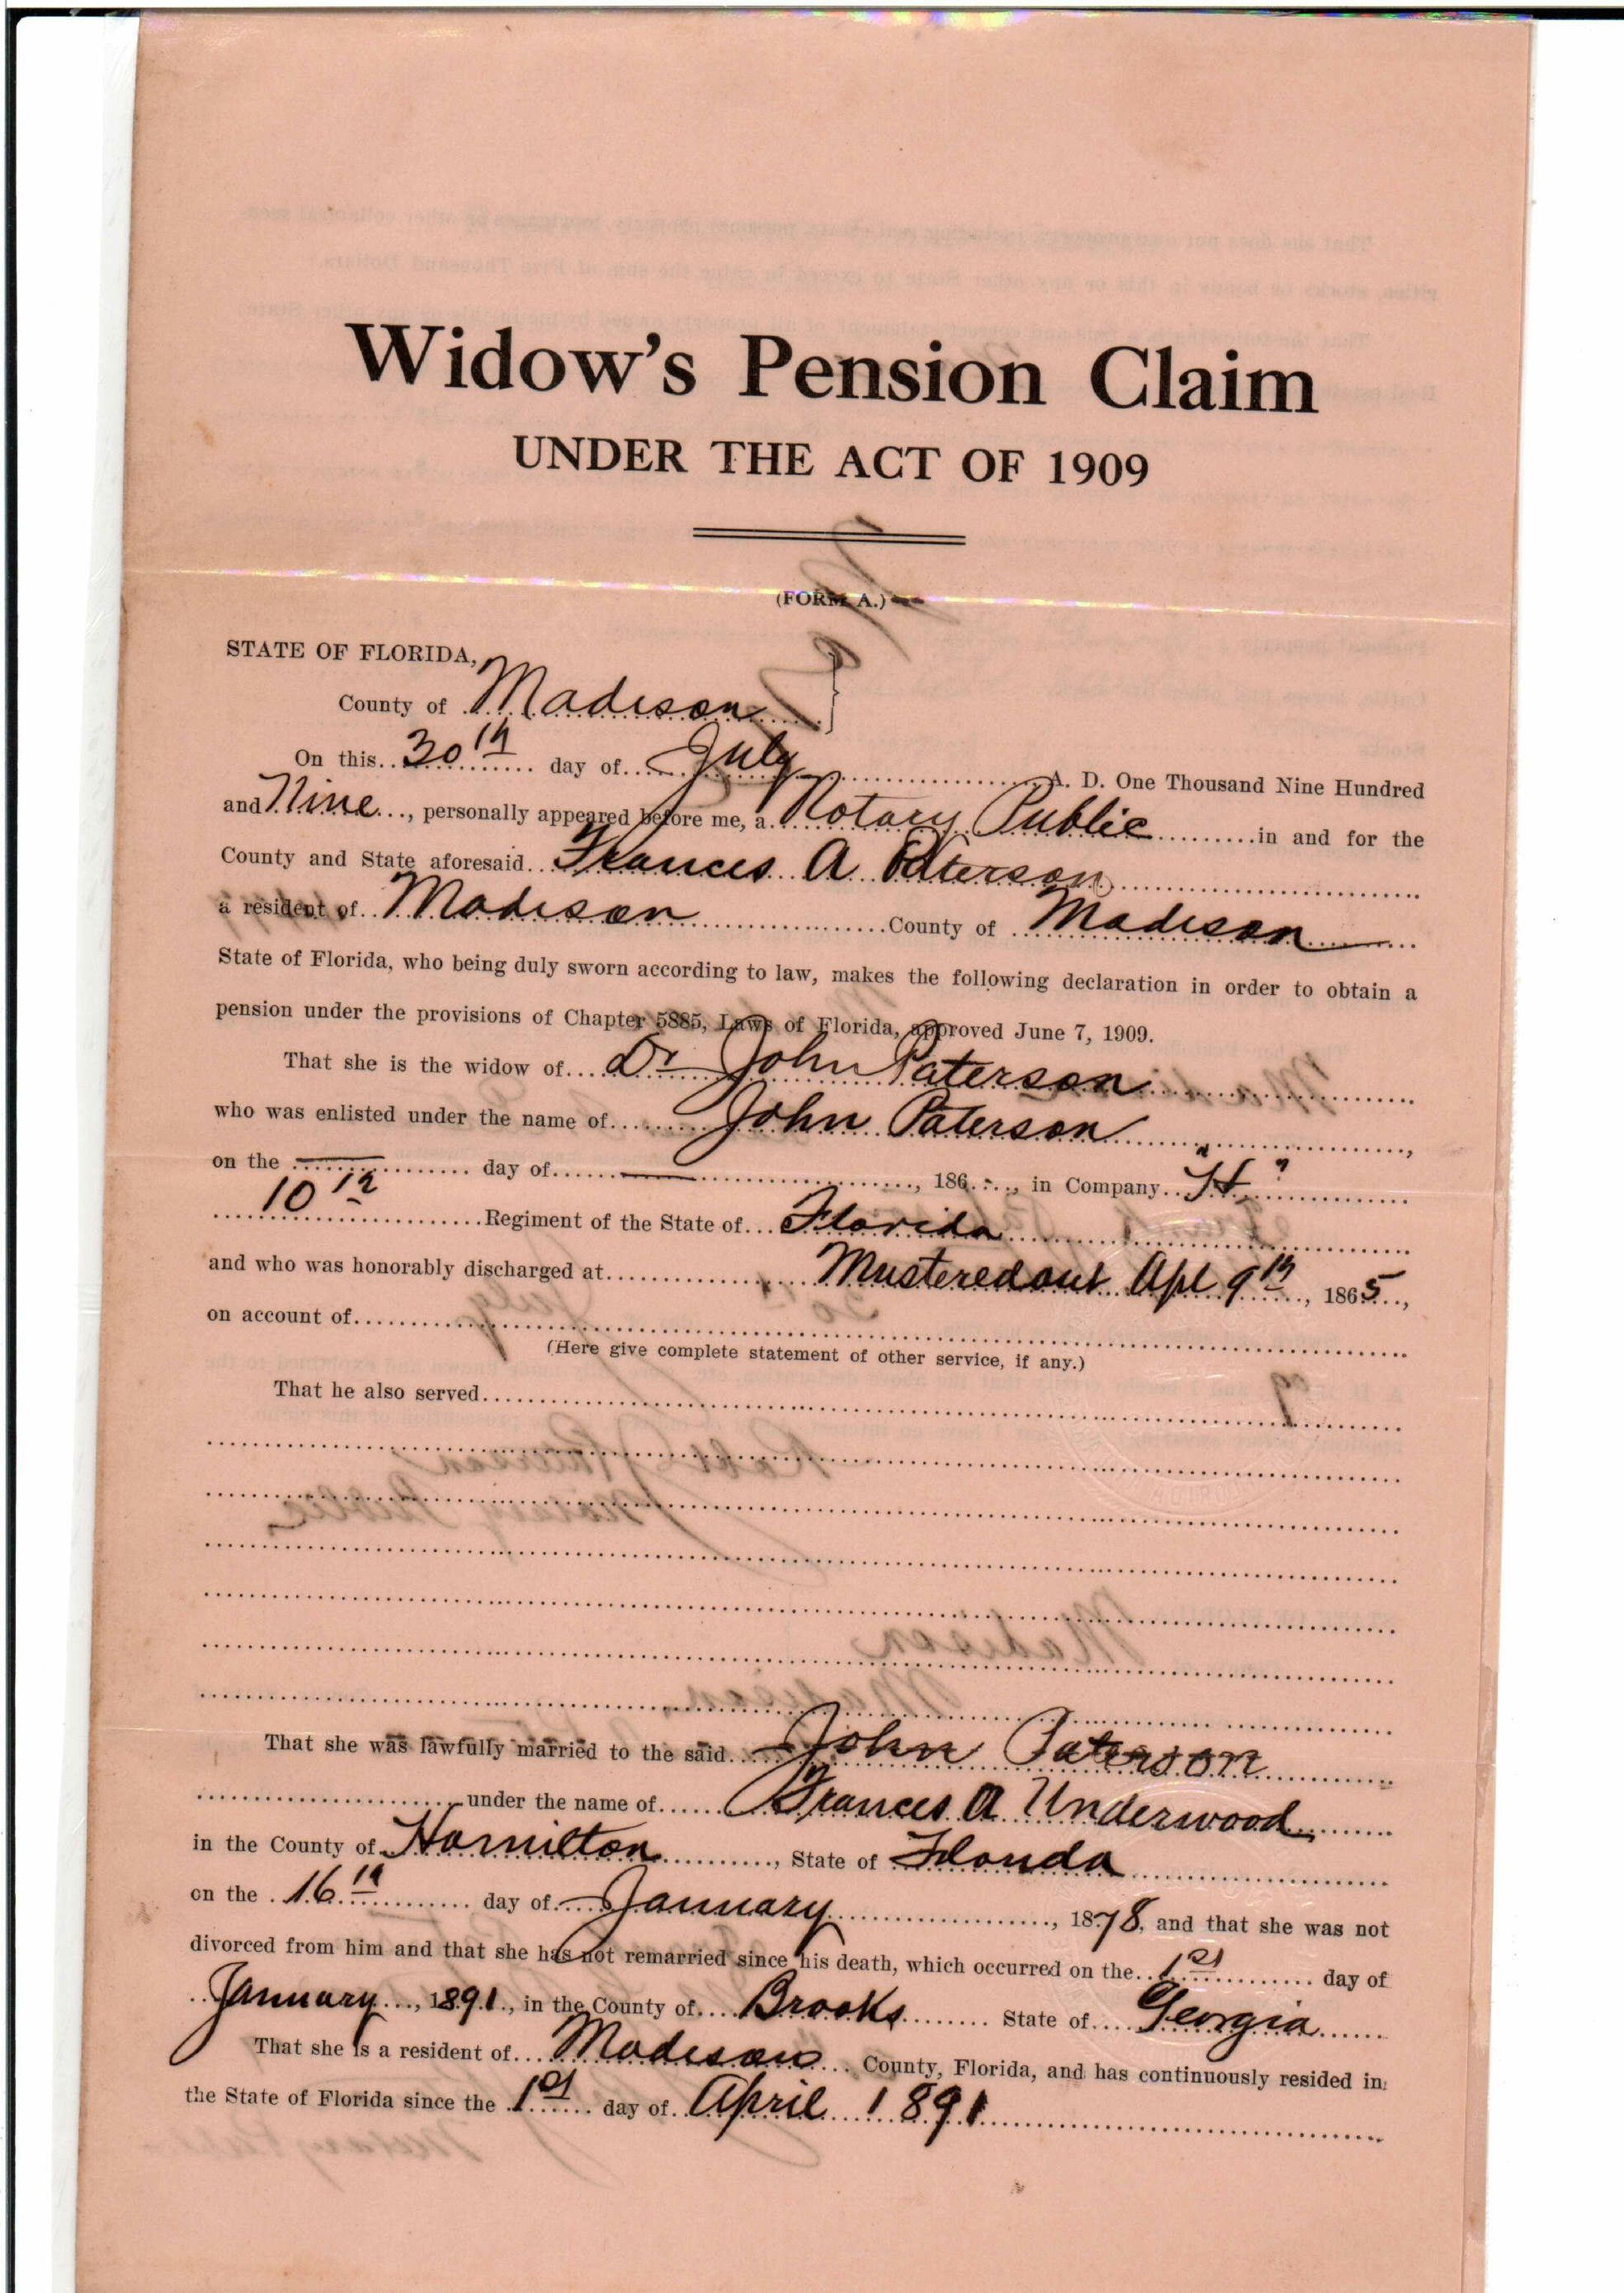 Widow's Pension Claim
UNDER THE ACT OF 1909
(FORM A.)
STATE OF FLORIDA,
County of Madison
On this 30th day of July A. D. One Thousand Nine Hundred
and Nine, personally appeared before me, a Notary Public in and for the
County and State aforesaid Frances A Paterson
a resident of Madison County of Madison
State of Florida, who being duly sworn according to law, makes the following declaration in order to obtain a
pension under the provisions of Chapter 5885, Laws of Florida, approved June 7, 1909.
That she is the widow of Dr John Paterson
who was enlisted under the name of John Paterson,
on the — day of —, 186-, in Company "H"
10th Regiment of the State of Florida
and who was honorably discharged at Mustered out Apl 9th, 1865,
on account of
(Here give complete statement of other service, if any.)
That he also served
That she was lawfully married to the said John Paterson
under the name of Frances A Underwood
in the County of Hamilton, State of Florida
on the 16th day of January, 1878, and that she was not
divorced from him and that she has not remarried since his death, which occurred on the 1st day of
January, 1891, in the County of Brooks State of Georgia
That she is a resident of Madison County, Florida, and has continuously resided in
the State of Florida since the 1st day of April 1891